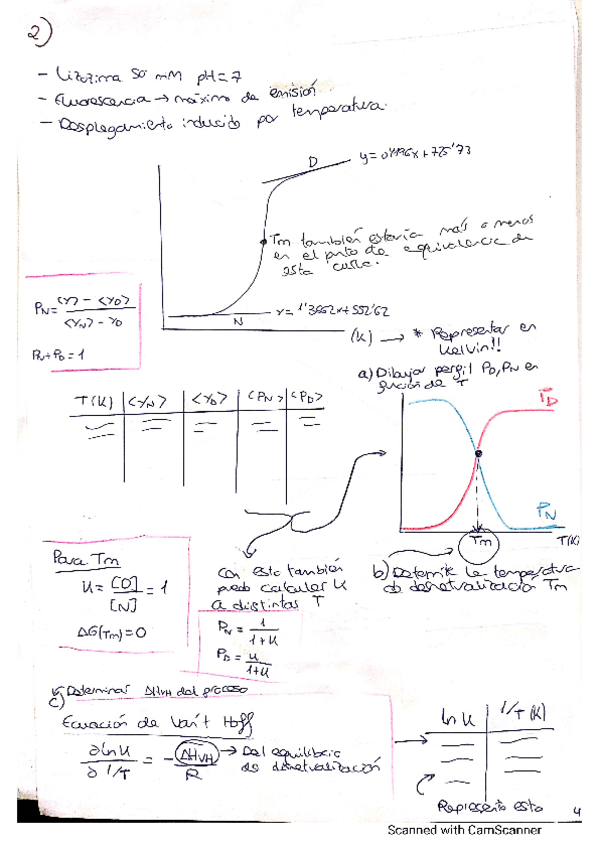 2)
- Lizozima 50 mM pH=7
- Fluorescencia → máximo de emisión
- Desplegamiento inducido por temperatura.
D
Tm también estaría más o menos
en el punto de equivalencia de
esta curva.
N
(K) → * Representar en
Kelvin!!
P_N = <Y> - <Y_D> / <Y_N> - Y_D
P_N + P_D = 1
a) Dibujar perfil P_D, P_N en
función de T
T(K) <Y_N> <Y_D> <P_N> <P_D>
P_D
P_N
Tm T(K)
Para Tm
K = [D] / [N] = 1
ΔG(Tm) = 0
Con esto también
puedo calcular K
a distintas T
P_N = 1 / 1+K
P_D = K / 1+K
b) Determine la temperatura
de desnaturalización Tm
c) Determinar ΔH_VH del proceso
Ecuación de Van't Hoff
∂lnK / ∂ 1/T = - ΔH_VH / R → Del equilibrio
de desnaturalización
ln K 1/T (K)
Represento esto
4
Scanned with CamScanner